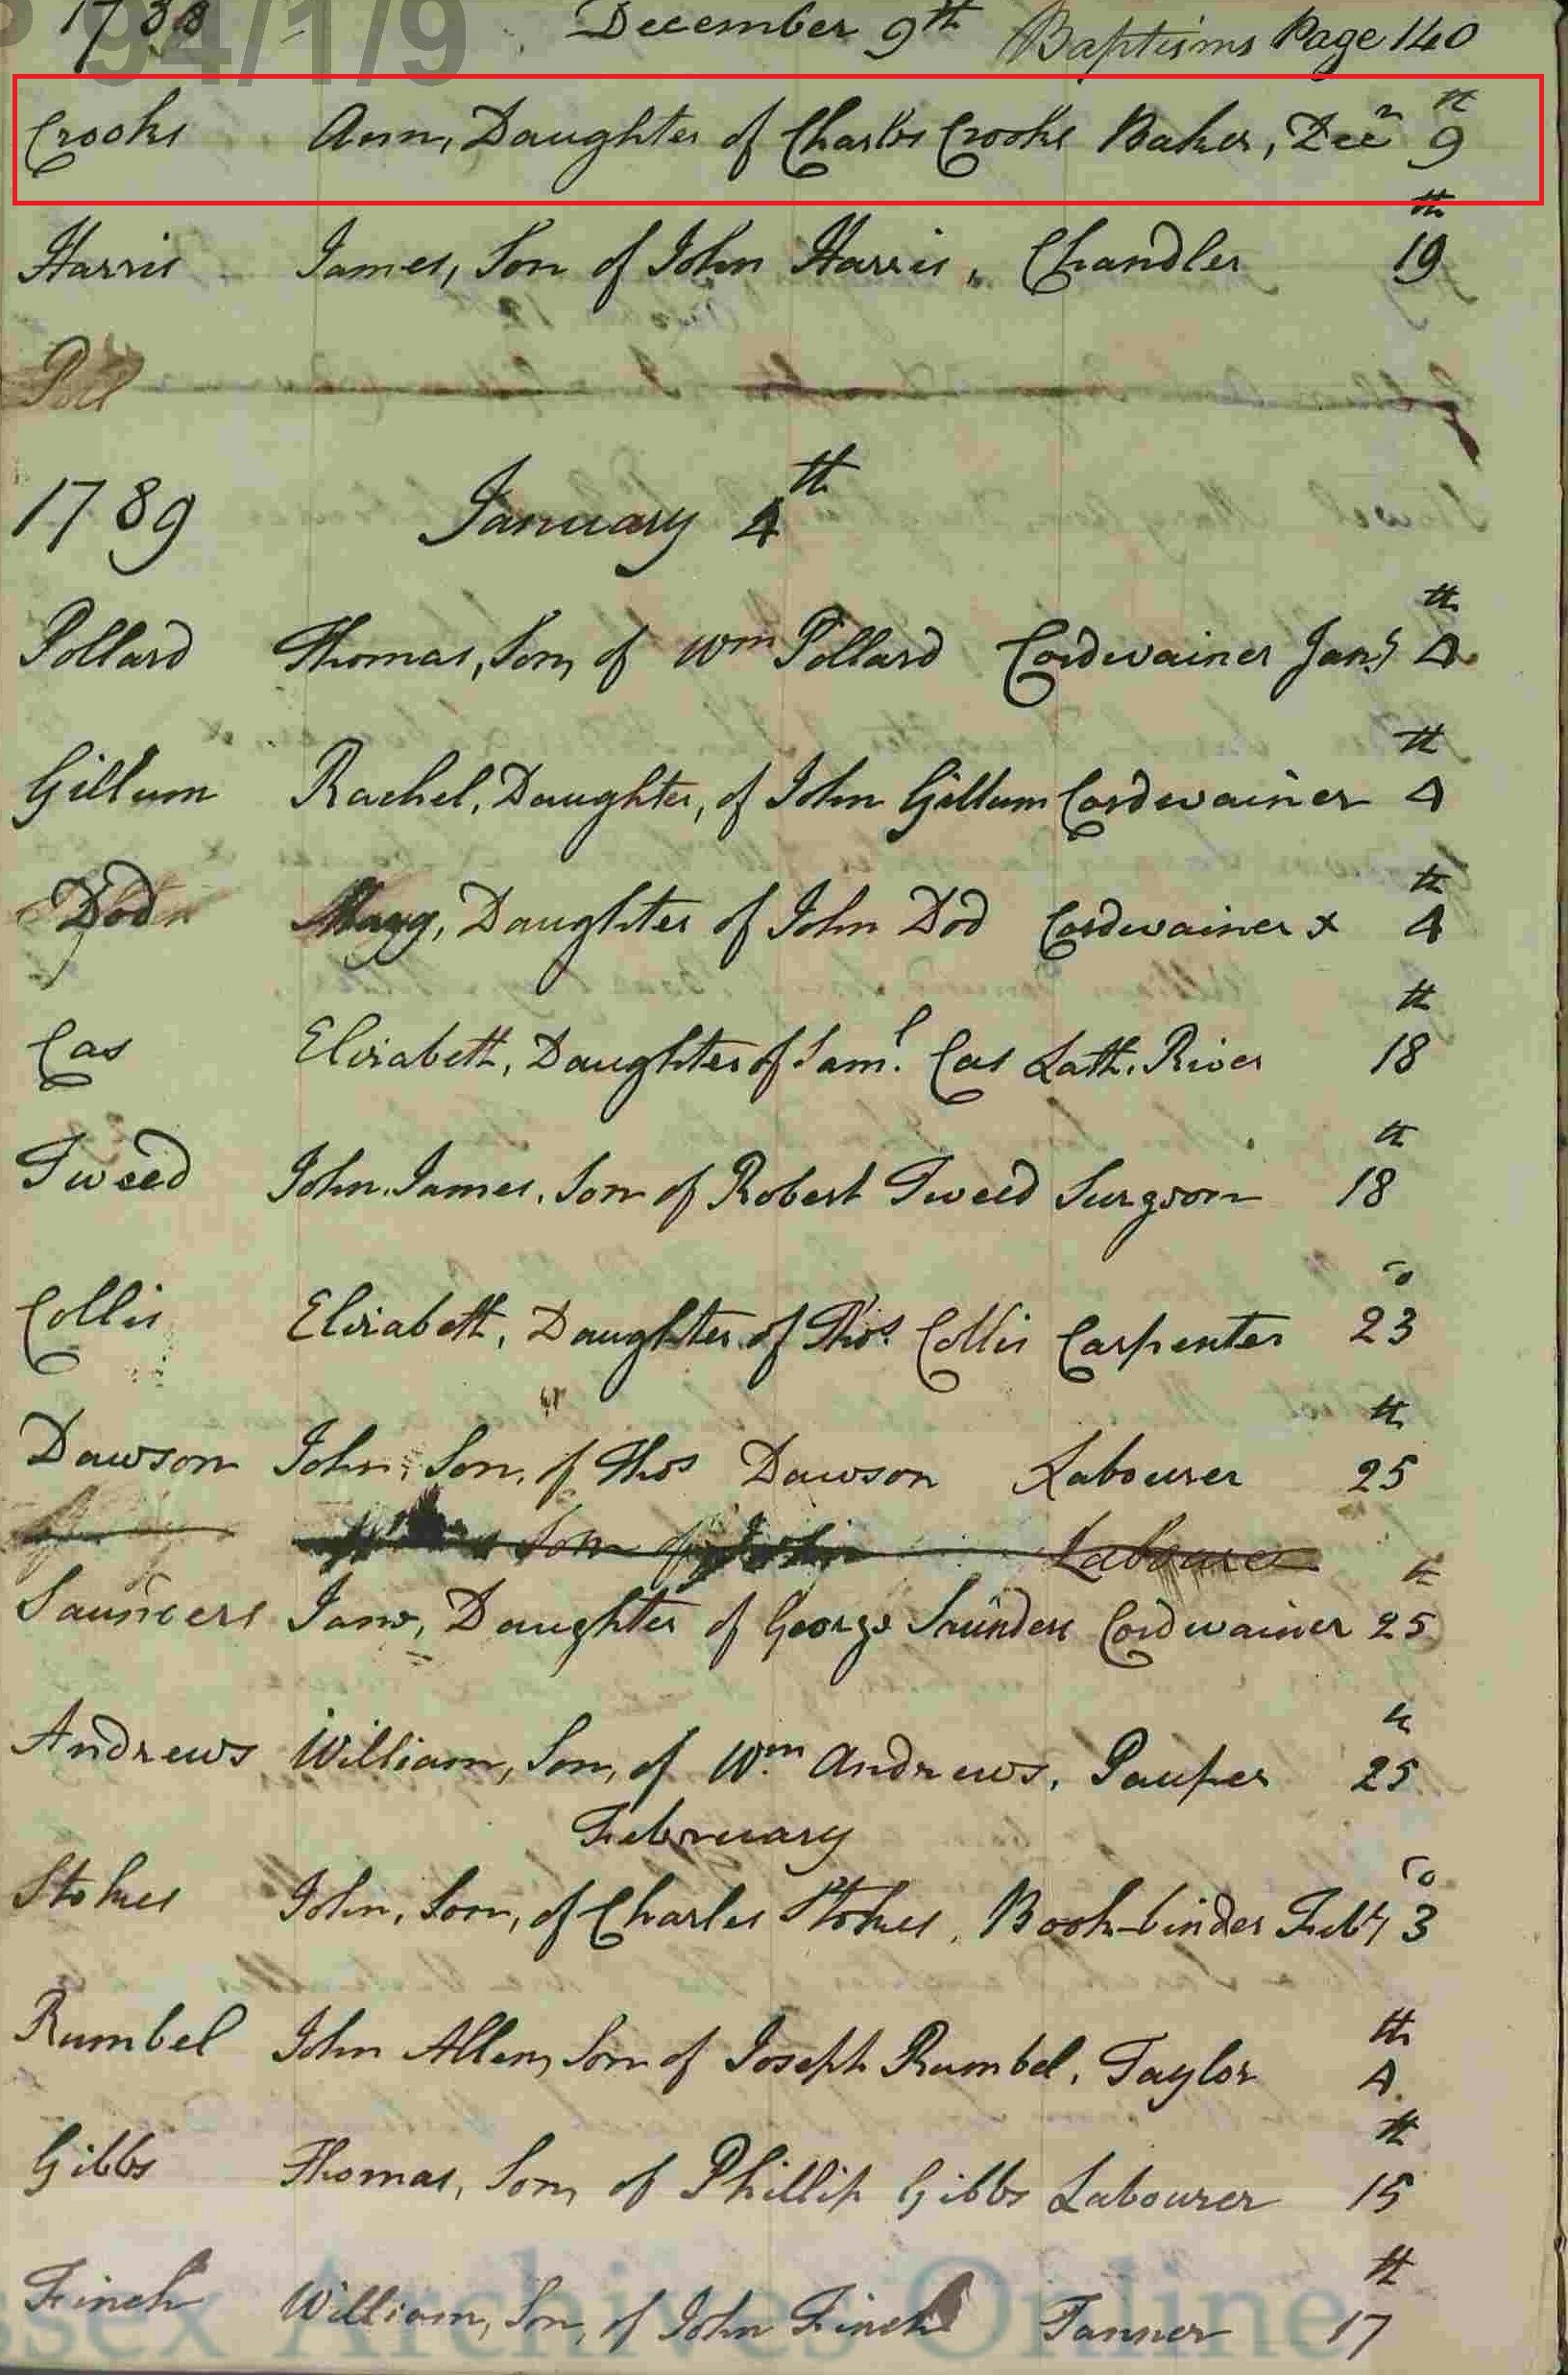 1788 December 9th Baptisms Page 140
94/1/9
Crooks Ann, Daughter of Charles Crooks Baker, Decr 9th
Harris James, Son of John Harris, Chandler 19th
1789 January 4th
Pollard Thomas, Son, of Wm Pollard Cordwainer Jany 4th
Gillum Rachel, Daughter, of John Gillum Cordwainer 4th
Dod Mary, Daughter of John Dod Cordwainer x 4th
Cas Elizabeth, Daughter of Saml. Cas Lath. River 18th
Tweed John James, Son of Robert Tweed Surgeon 18th
Collis Elizabeth, Daughter of Thos. Collis Carpenter 23
Dawson John, Son, of Thos Dawson Labourer 25th
Son of John Labourer
Saunders Jane, Daughter of George Saunders Cordwainer 25th
Andrews William, Son, of Wm. Andrews, Pauper 25
February
Stokes John, Son, of Charles Stokes, Book-binder Feby 3
Rumbel John Allen, Son of Joseph Rumbel, Taylor 4th
Gibbs Thomas, Son, of Phillip Gibbs Labourer 15th
Finch William, Son, of John Finch Tanner 17th
ssex Archives Online